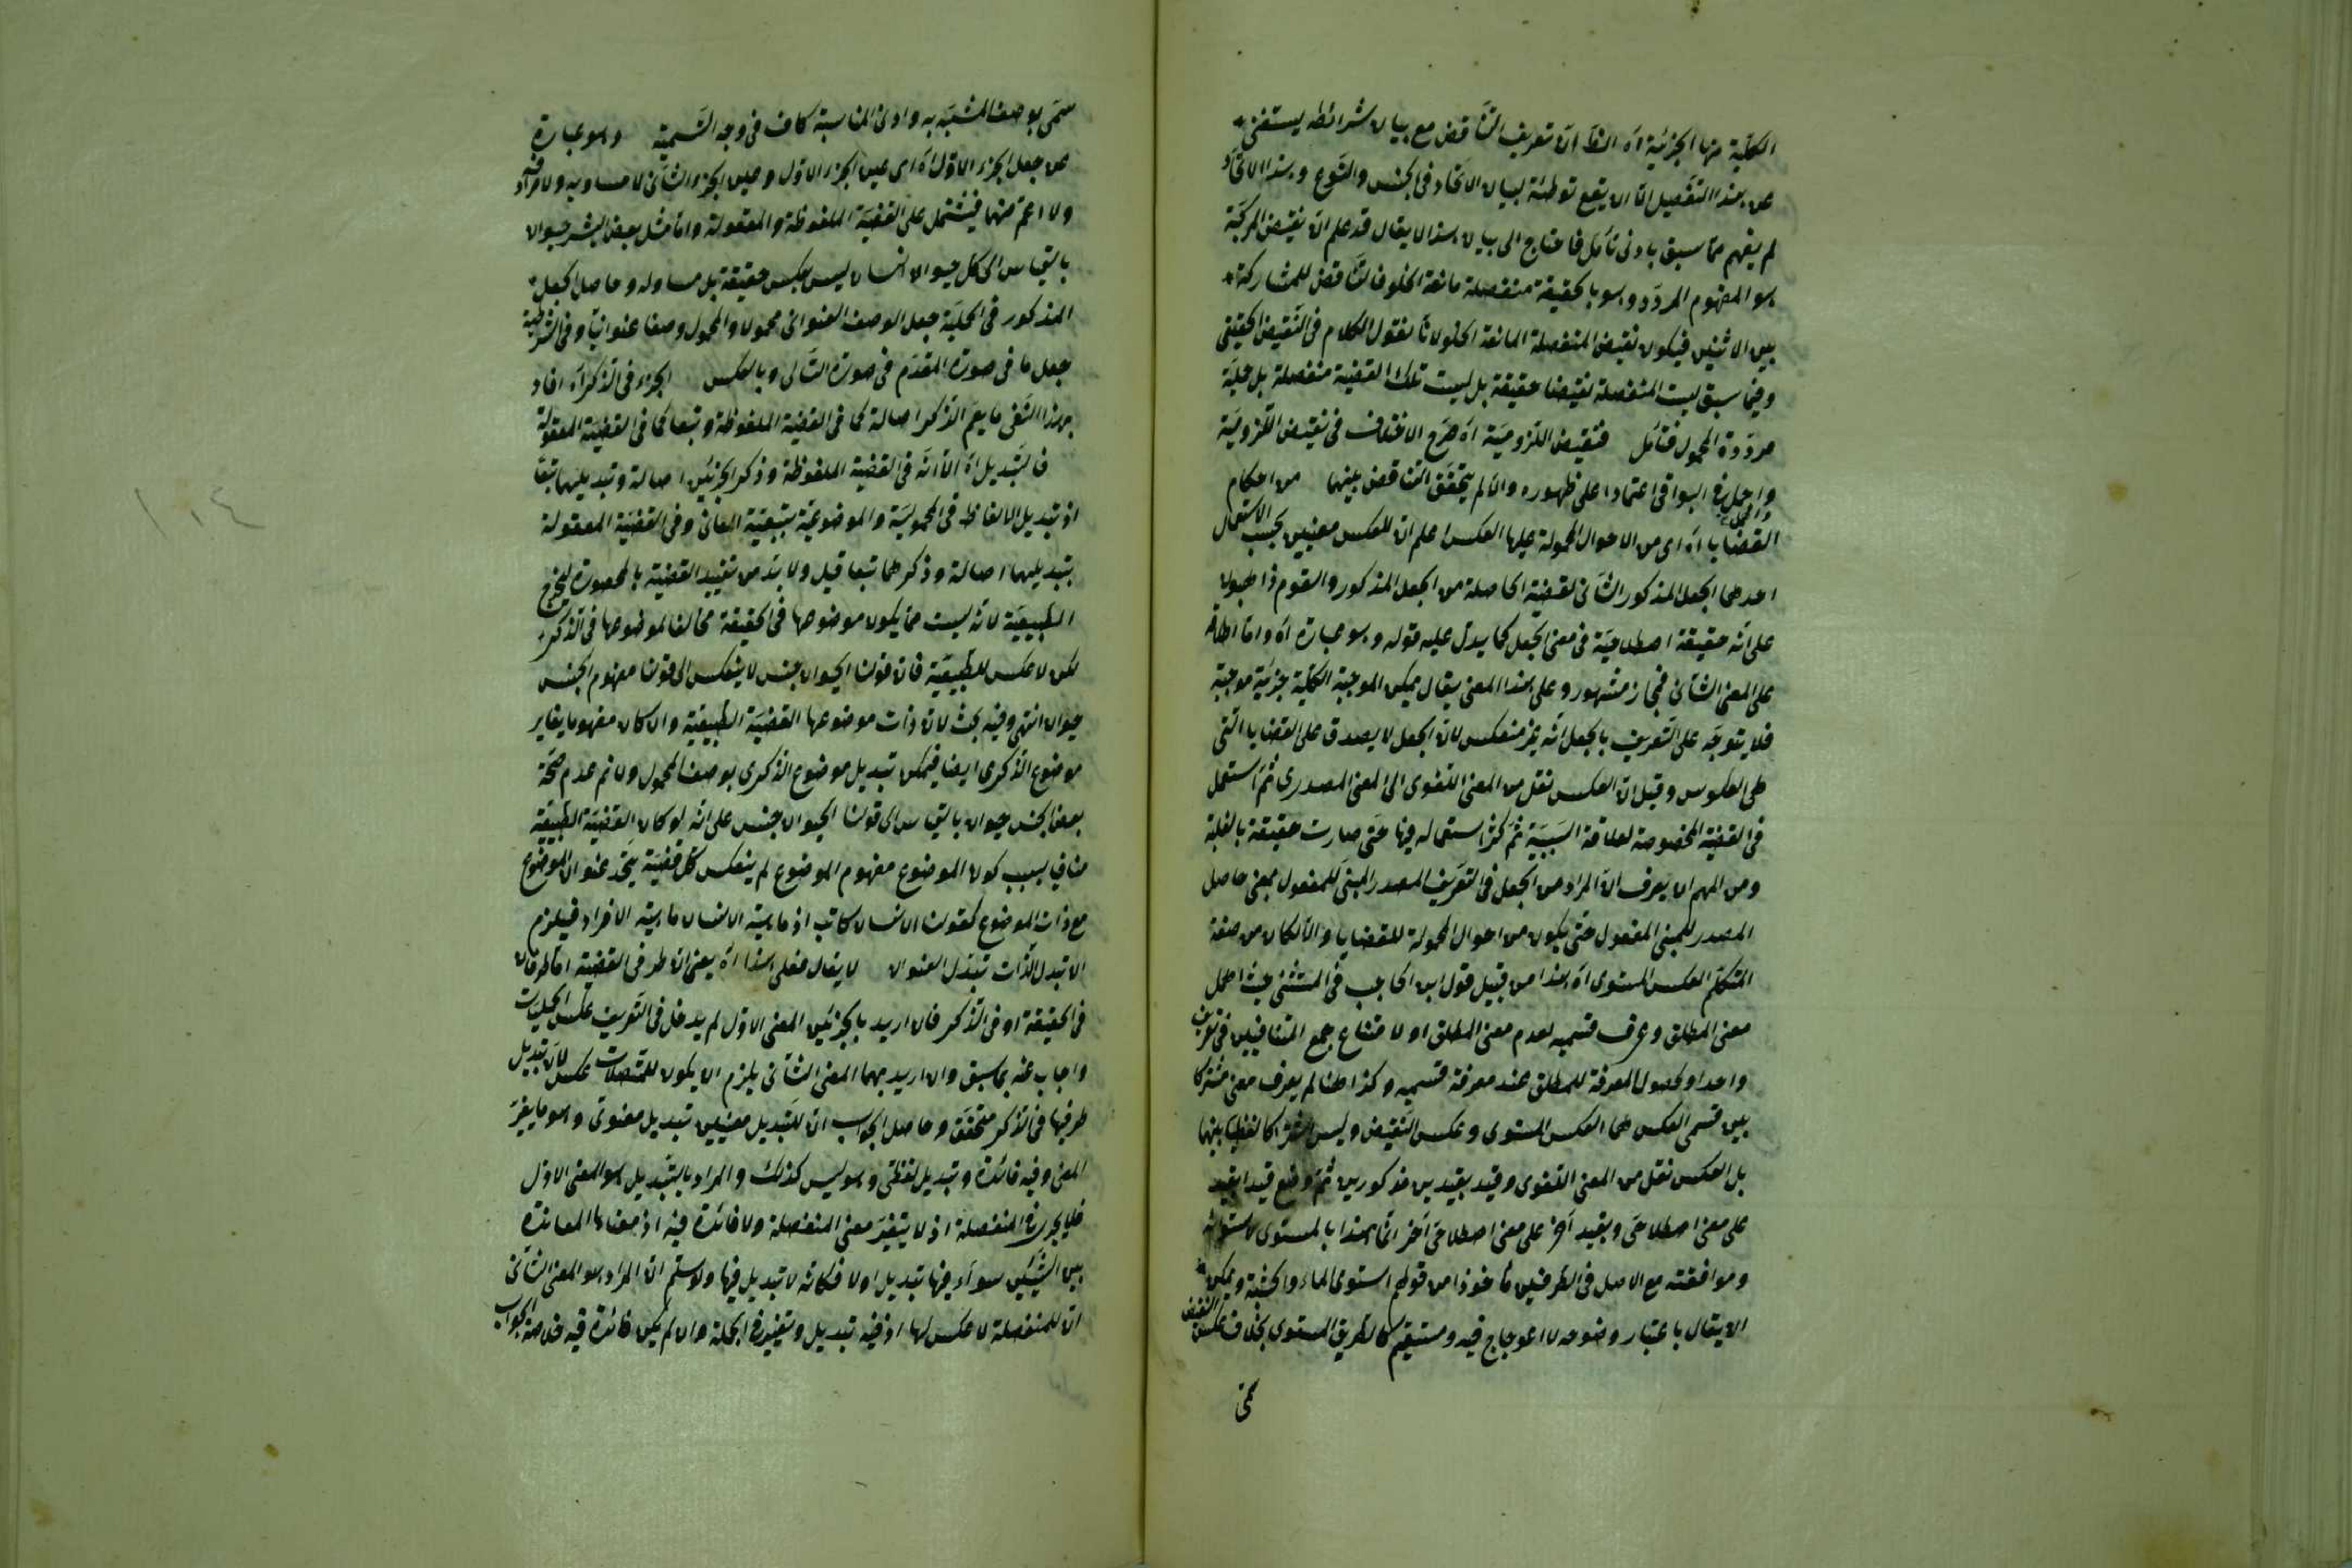 الكلية منها الجزئية آه الظ ان تعريف التناقض مع بيان شرائطه يستغنى
عن هذا التفصيل الا ان يقع توطئة لبيان الاتحاد فى الجنس والنوع وهذا الاتحاد
لم يفهم مما سبق بادنى تأمل فاحتاج الى بيان هذا لا يقال قد علم ان نقيض المركبة
هو المفهوم المردد وهو بالحقيقة منفصلة مانعة الخلو فالتناقض للمشاركة
بين الاثنين فيكون نقيض المنفصلة المانعة الخلو لانا نقول الكلام فى النقيض الحقيقى
وفيما سبق ليست المنفصلة نقيضا حقيقة بل ليست تلك القضية منفصلة بل حملية
مرددة المحمول فتأمل فنقيض اللزومية آه صرح الاختلاف فى نقيض اللزومية
واجمل فى البواقى اعتمادا على ظهوره والا لم يتحقق التناقض بينهما من احكام
القضايا آه اى من الاحوال المحمولة عليها العكس اعلم ان للعكس معنيين بحسب الاستعمال
احدهما الجعل المذكور الثانى القضية الحاصلة من الجعل المذكور والقوم ذاهبون
على انه حقيقة اصطلاحية فى معنى الجعل كما يدل عليه قوله وهو عبارة آه واما اطلاقه
على المعنى الثانى فمجاز مشهور وعلى هذا المعنى يقال عكس الموجبة الكلية جزئية موجبة
فلا يتوجه على التعريف بالجعل انه غير منعكس لان الجعل لا يصدق على القضايا التى
هى العكوس وقيل ان العكس نقل من المعنى اللغوى الى المعنى المصدرى ثم استعمل
فى القضية المخصوصة لعلاقة السببية ثم كثر استعماله فيها حتى صارت حقيقة بالغلبة
ومن المهم ان يعرف ان المراد من الجعل فى التعريف المصدر المبنى للمفعول بمعنى حاصل
المصدر المبنى المفعول حتى يكون من احوال المحمولة للقضايا والا لكان من صفة
المتكلم العكس المستوى آه هذا من قبيل قول ابن الحاجب فى المستثنى حيث اجمل
معنى المطلق وعرف قسميه لعدم معنى المطلق او لامتناع جمع المتنافيين فى تعريف
واحد او لحصول المعرفة للمطلق عند معرفة قسميه وكذا هنا لم يعرف معنى مشتركا
بين قسمى العكس هما العكس المستوى وعكس النقيض وليس مشتركا لفظيا بينهما
بل العكس نقل من المعنى اللغوى وقيد بقيدين مذكورين ثم وضع قيد ابقيد
على معنى اصطلاحى وبقيد آخر على معنى اصطلاحى آخر انما هذا بالمستوى لاستوائه
وموافقته مع الاصل فى الطرفين مأخوذا من قولهم استوى الماء والخشبة ويمكن
ان يقال باعتبار وضوحه لا اعوجاج فيه ومستقيم كالطريق المستوى بخلاف عكس النقيض
سمى بوصف المشبه به وادنى المناسبة كاف فى وجه التسمية وهو عبارة
عن جعل الجزء الاول آه اى عين الجزء الاول وعين الجزء الثانى لا مساويه ولا مرادفه
ولا اعم منهما فيشتمل على القضية الملفوظة والمعقولة واما مثل بعض البشر حيوان
بالقياس الى كل حيوان انسان ليس بعكس حقيقة بل مساو له وحاصل الجعل
المذكور فى الحملية جعل الوصف العنوانى محمولا والمحمول وصفا عنوانيا وفى الشرطية
جعل ما فى صورة المقدم فى صورة التالى وبالعكس الجزء فى الذكر آه افاد
بهذا النفى ما يعم الذكر اصالة كما فى القضية الملفوظة وتبعا كما فى القضية المعقولة
فالتبديل آه الا انه فى القضية الملفوظة وذكر الجزئين اصالة وتبديليهما تبعا
اذ تبديل الالفاظ فى المحمولية والموضوعية بتبعية المعانى وفى القضية المعقولة
بتبديليهما اصالة وذكرهما تبعا قيل ولا بد من تقييد القضية بالمحصورة ليخرج
الطبيعية لانه ليست مما يكون موضوعها فى الحقيقة مخالفا لموضوعها فى الذكر
لكن لا عكس للطبيعية فان قولنا الحيوان جنس لا ينعكس الى قولنا مفهوم الجنس
حيوان انتهى وفيه بحث لان ذات موضوعها القضية الطبيعية وان كان مفهوما يغاير
موضوع الذكرى ايضا فيمكن تبديل موضوع الذكرى بوصف المحمول ولا نم عدم صحة
بعض الجنس حيوان بالقياس الى قولنا الحيوان جنس على انه لو كان القضية الطبيعية
منافيا بسبب كون الموضوع مفهوم الموضوع لم ينعكس كل قضية يتحد عنوان الموضوع
مع ذات الموضوع كقولنا الانسان كاتب اذ ماهية الانسان ماهية الافراد فيلزم
الا تبدل الذات تبدل العنوان لا يقال فعلى هذا آه يعنى ان طرفى القضية اما طرفان
فى الحقيقة او فى الذكر فان اريد بالجزئين المعنى الاول لم يدخل فى التعريف عكس الحمليات
واجاب عنه بما سبق وان اريد بهما المعنى الثانى يلزم ان يكون للمنفصلات عكس لان تبديل
طرفيها فى الذكر متحقق وحاصل الجواب ان للتبديل معنيين تبديل معنوى وهو ما يغير
المعنى وفيه فائدة وتبديل لفظى وهو ليس كذلك والمراد بالتبديل هو المعنى الاول
فلا يجرى فى المنفصلة اذ لا يتغير معنى المنفصلة ولا فائدة فيه اذ معناها المعاندة
بين الشيئين سواء فيها تبديل اولا فكانه لا تبديل فيها ولو سلم ان المراد هو المعنى الثانى
ان للمنفصلة لا عكس لها اذ فيه تبديل وتغيير فى الجملة وان لم يكن فائدة فيه خلاصة الجواب
١٠٤